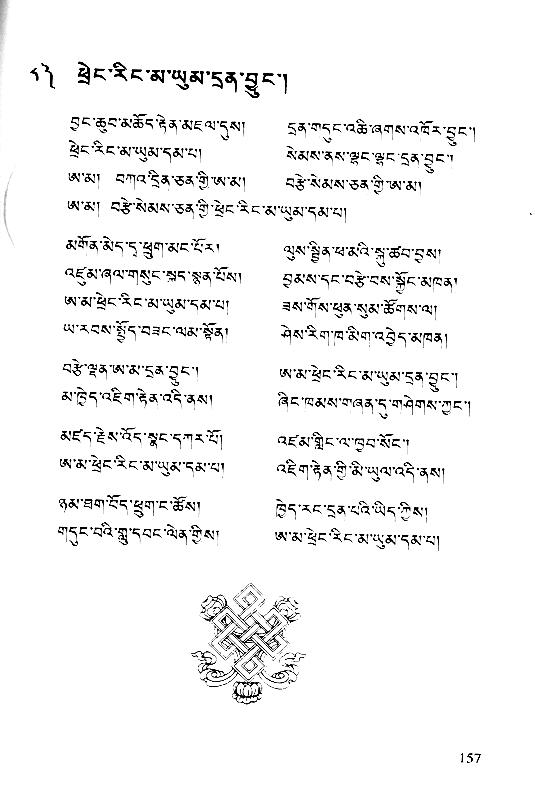 ༨༣ ཕྲེང་རིང་མ་ཡུམ་དྲན་བྱུང་།
བྱང་ཆུབ་མཆོད་རྟེན་མཇལ་དུས། དྲན་གདུང་འཆི་ཞགས་འཁོར་བྱུང་།
ཕྲེང་རིང་མ་ཡུམ་དམ་པ། སེམས་ནས་ལྷང་ལྷང་དྲན་བྱུང་།
ཨ་མ། བཀའ་དྲིན་ཅན་གྱི་ཨ་མ། བརྩེ་སེམས་ཅན་གྱི་ཨ་མ།
ཨ་མ། བརྩེ་སེམས་ཅན་གྱི་ཕྲེང་རིང་མ་ཡུམ་དམ་པ།
མགོན་མེད་དྭ་ཕྲུག་མང་པོར། ལུས་སྦྱིན་ཕ་མའི་སྐུ་ཚབ་བྱས།
འཛུམ་ཞལ་གསུང་སྐད་སྙན་པོས། བྱམས་དང་བརྩེ་བས་སྐྱོང་མཁན།
ཨ་མ་ཕྲེང་རིང་མ་ཡུམ་དམ་པ། ཟས་གོས་ཕུན་སུམ་ཚོགས་ལ།
ཡ་རབས་སྤྱོད་བཟང་ལམ་སྟོན། ཤེས་རིག་ཁ་མིག་འབྱེད་མཁན།
བརྩེ་ལྡན་ཨ་མ་དྲན་བྱུང་། ཨ་མ་ཕྲེང་རིང་མ་ཡུམ་དྲན་བྱུང་།
མ་ཁྱེད་འཇིག་རྟེན་འདི་ནས། ཞིང་ཁམས་གཞན་དུ་གཤེགས་ཀྱང་།
མཛད་རྗེས་འོད་སྣང་དཀར་པོ། འཛམ་གླིང་ལ་ཁྱབ་སོང་།
ཨ་མ་ཕྲེང་རིང་མ་ཡུམ་དམ་པ། འཇིག་རྟེན་གྱི་མི་ཡུལ་འདི་ནས།
ཉམ་ཐག་བོད་ཕྲུག་ང་ཚོས། ཁྱེད་རང་དྲན་པའི་ཡིད་ཀྱིས།
གདུང་བའི་གླུ་དབང་ལེན་གྱིས། ཨ་མ་ཕྲེང་རིང་མ་ཡུམ་དམ་པ།
157